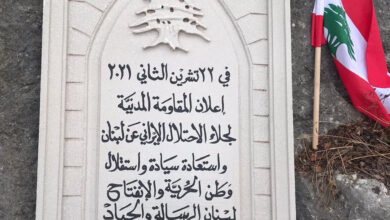 في ٢٢ تشرين الثاني ٢٠٢١
إعلان المقاومة المدنية
لجلاء الاحتلال الإيراني عن لبنان
واستعادة سيادة واستقلال
وطن الحرية والإنفتاح
لبنان الرسالة والحياد